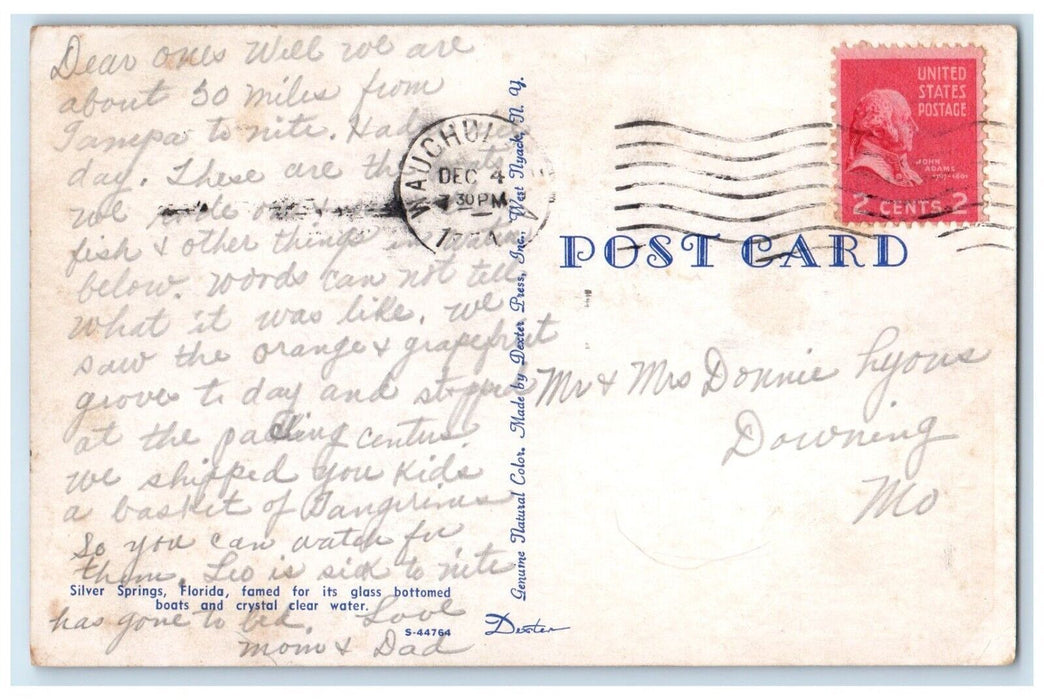 Dear ones Well we are
about 50 miles from
Tampa to nite. Had
day. These are the
we
fish & other things in
below. Words can not tell
what it was like. we
saw the orange & grapefruit
groves to day and stopped
at the packing centers.
we shipped you kids
a basket of Tangerines
So you can watch for
them. Leo is sick to nite
has gone to bed. Love
mom & Dad
Silver Springs, Florida, famed for its glass bottomed
boats and crystal clear water.
S-44764
Dexter
Genuine Natural Color. Made by Dexter Press, Inc., West Nyack, N. Y.
DEC 4
30 PM
UNITED
STATES
POSTAGE
JOHN
ADAMS
2 CENTS 2
POST CARD
Mr & Mrs Donnie Lyons
Downing
Mo